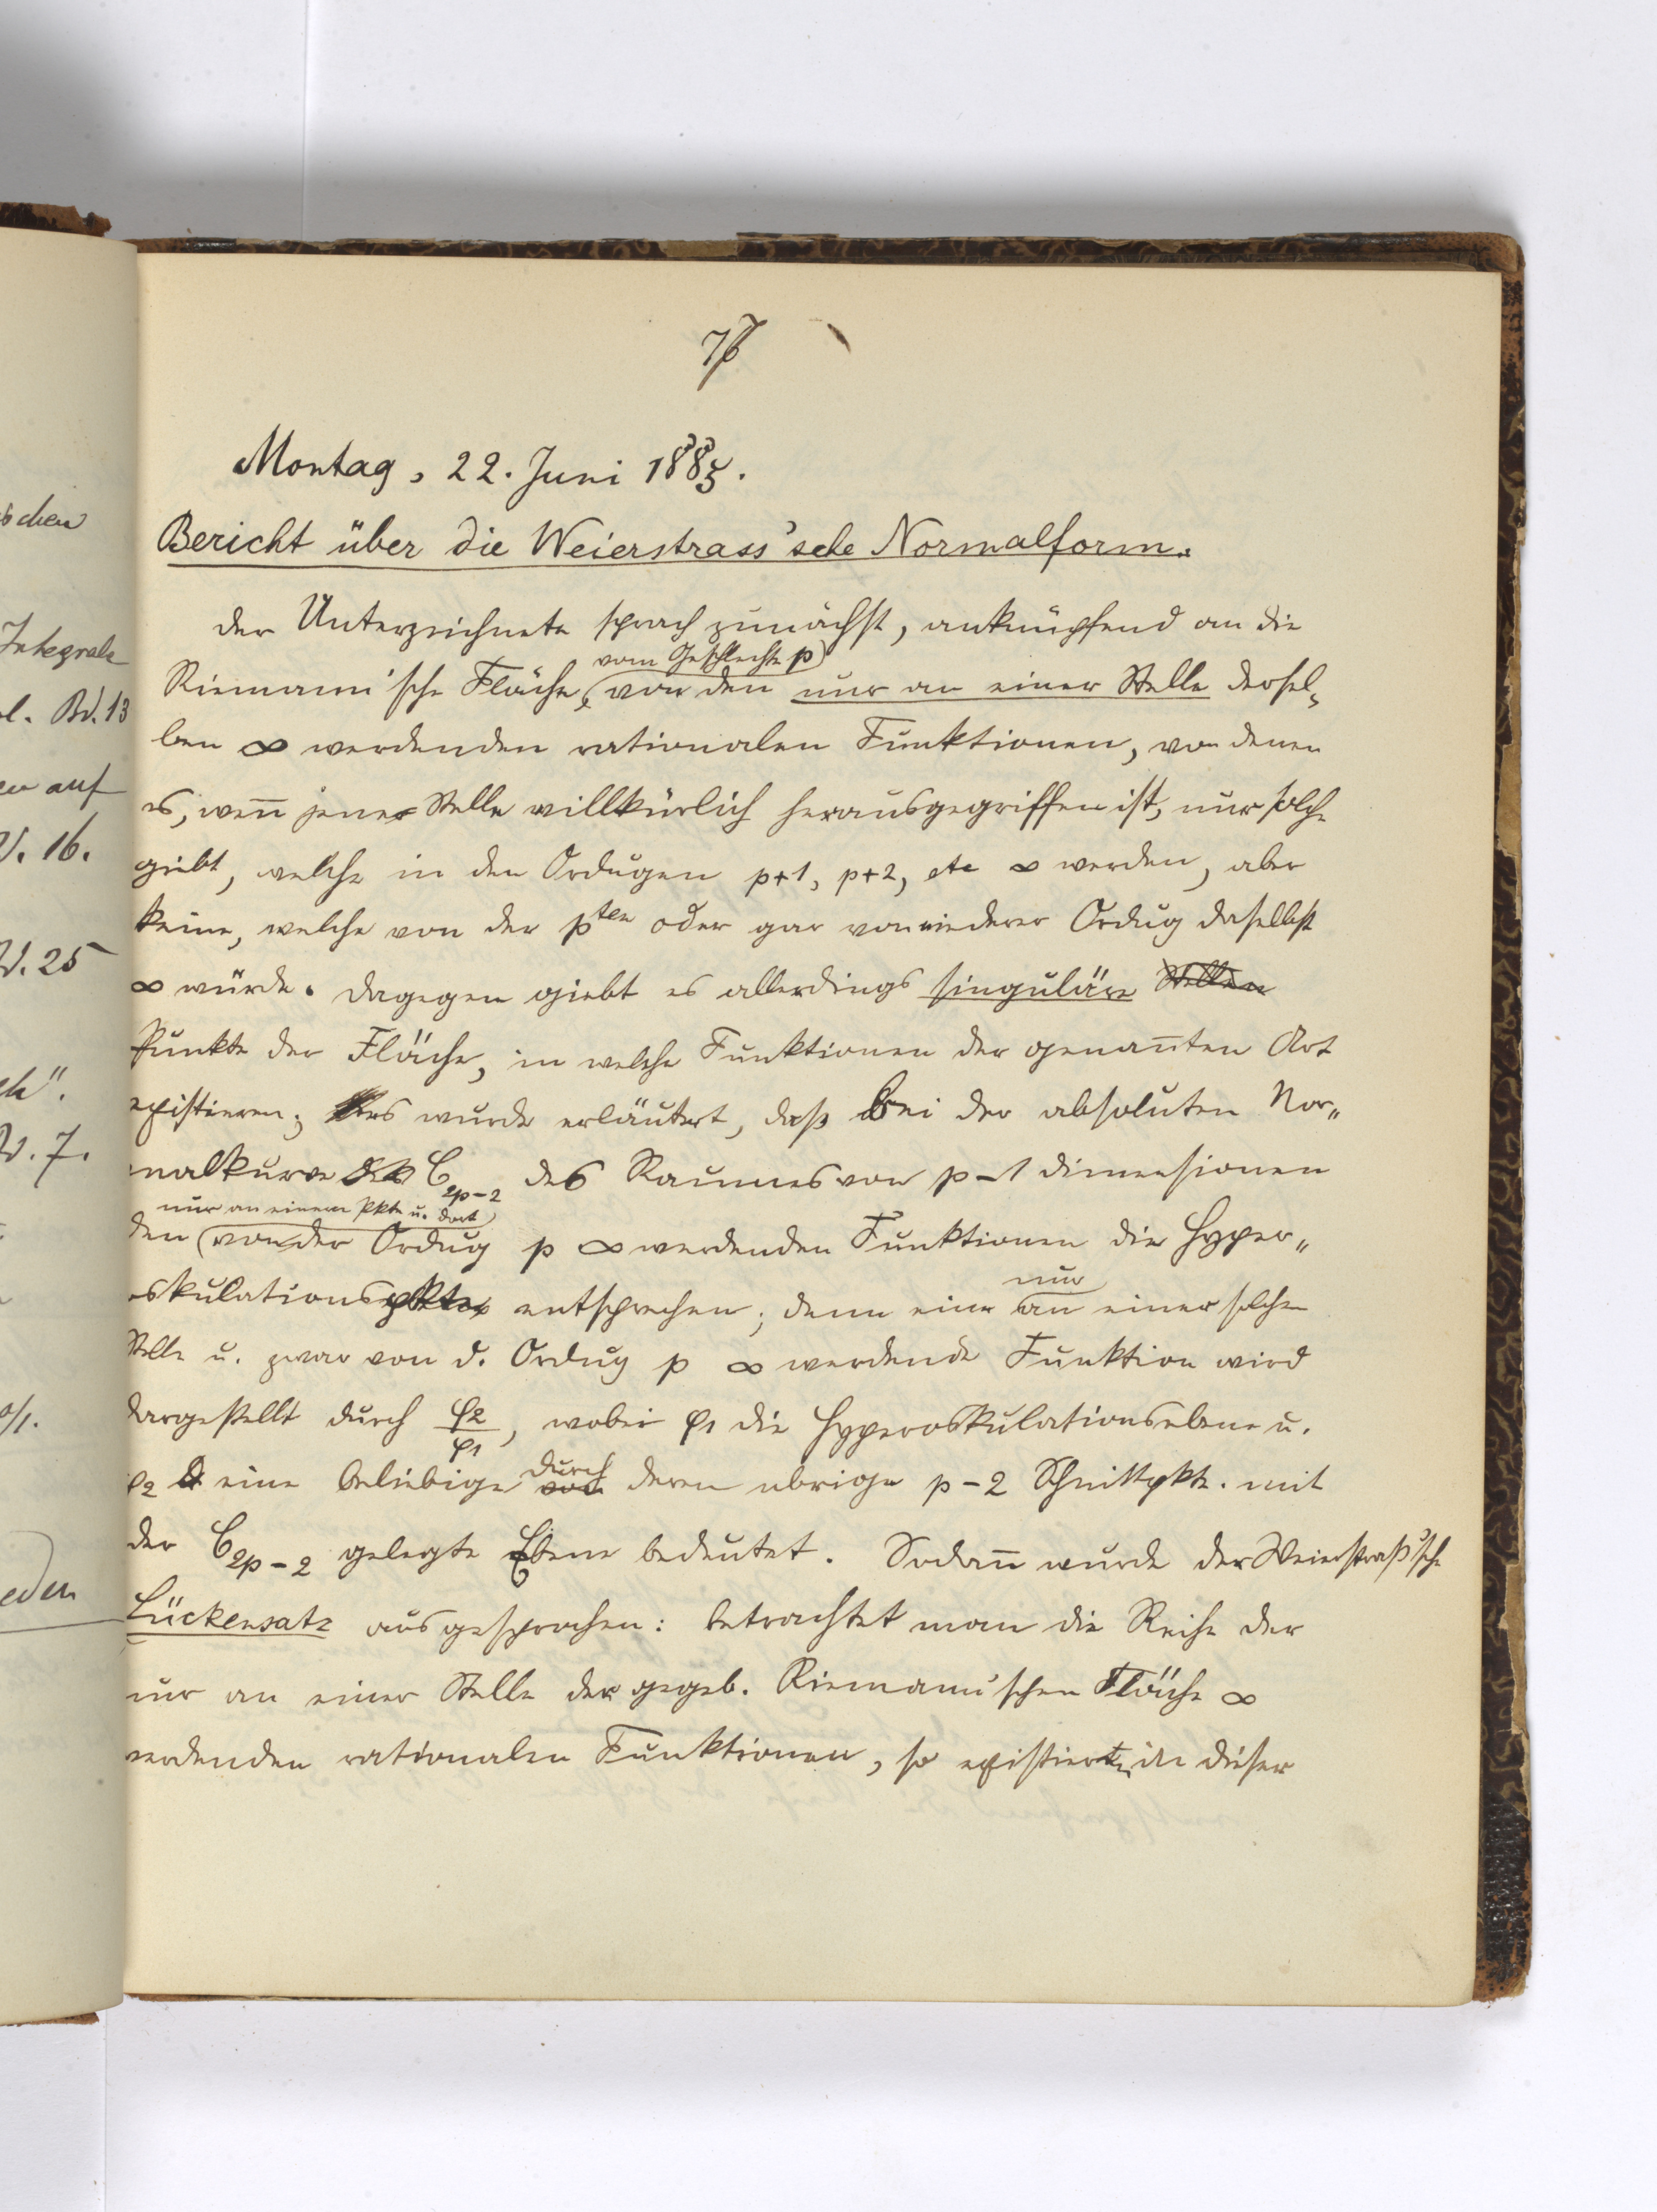 76
Montag, 22. Juni 1885.
Bericht über die Weierstrass'sche Normalform.
Der Unterzeichnete sprach zunächst, anknüpfend an die
vom Geschlechte p
Riemann'sche Fläche, von den nur an einer Stelle dersel-
ben ∞ werdenden rationalen Funktionen, von denen
es, wenn jene Stelle willkürlich herausgegriffen ist, nur solche
giebt, welche in den Ordnungen p+1, p+2, etc ∞ werden, aber
keine, welche von der pten oder gar von niederer Ordnung daselbst
∞ würde. Dagegen giebt es allerdings singuläre Stellen
Punkte der Fläche, in welche Funktionen der genannten Art
existieren; es wurde erläutert, daß bei der absoluten Nor-
malkurve C2p-2 des Raumes von p-1 Dimensionen
nur an einem Pkte u. dort
den von der Ordnung p ∞ werdenden Funktionen die Hyper-
oskulationspkte entsprechen; denn eine nur an einer solchen
Stelle u. zwar von d. Ordnung p ∞ werdende Funktion wird
dargestellt durch φ2/φ1, wobei φ1 die Hyperoskulationsebene u.
φ2 eine beliebige durch deren übrige p-2 Schnittpkte. mit
der C2p-2 gelegte Ebene bedeutet. Sodann wurde der Weierstraß'sche
Lückensatz ausgesprochen: betrachtet man die Reihe der
nur an einer Stelle der gegeb. Riemann'schen Fläche ∞
werdenden rationalen Funktionen, so existiert in dieser
schen
Integrale
Bd. 13
auf
16.
25
7.